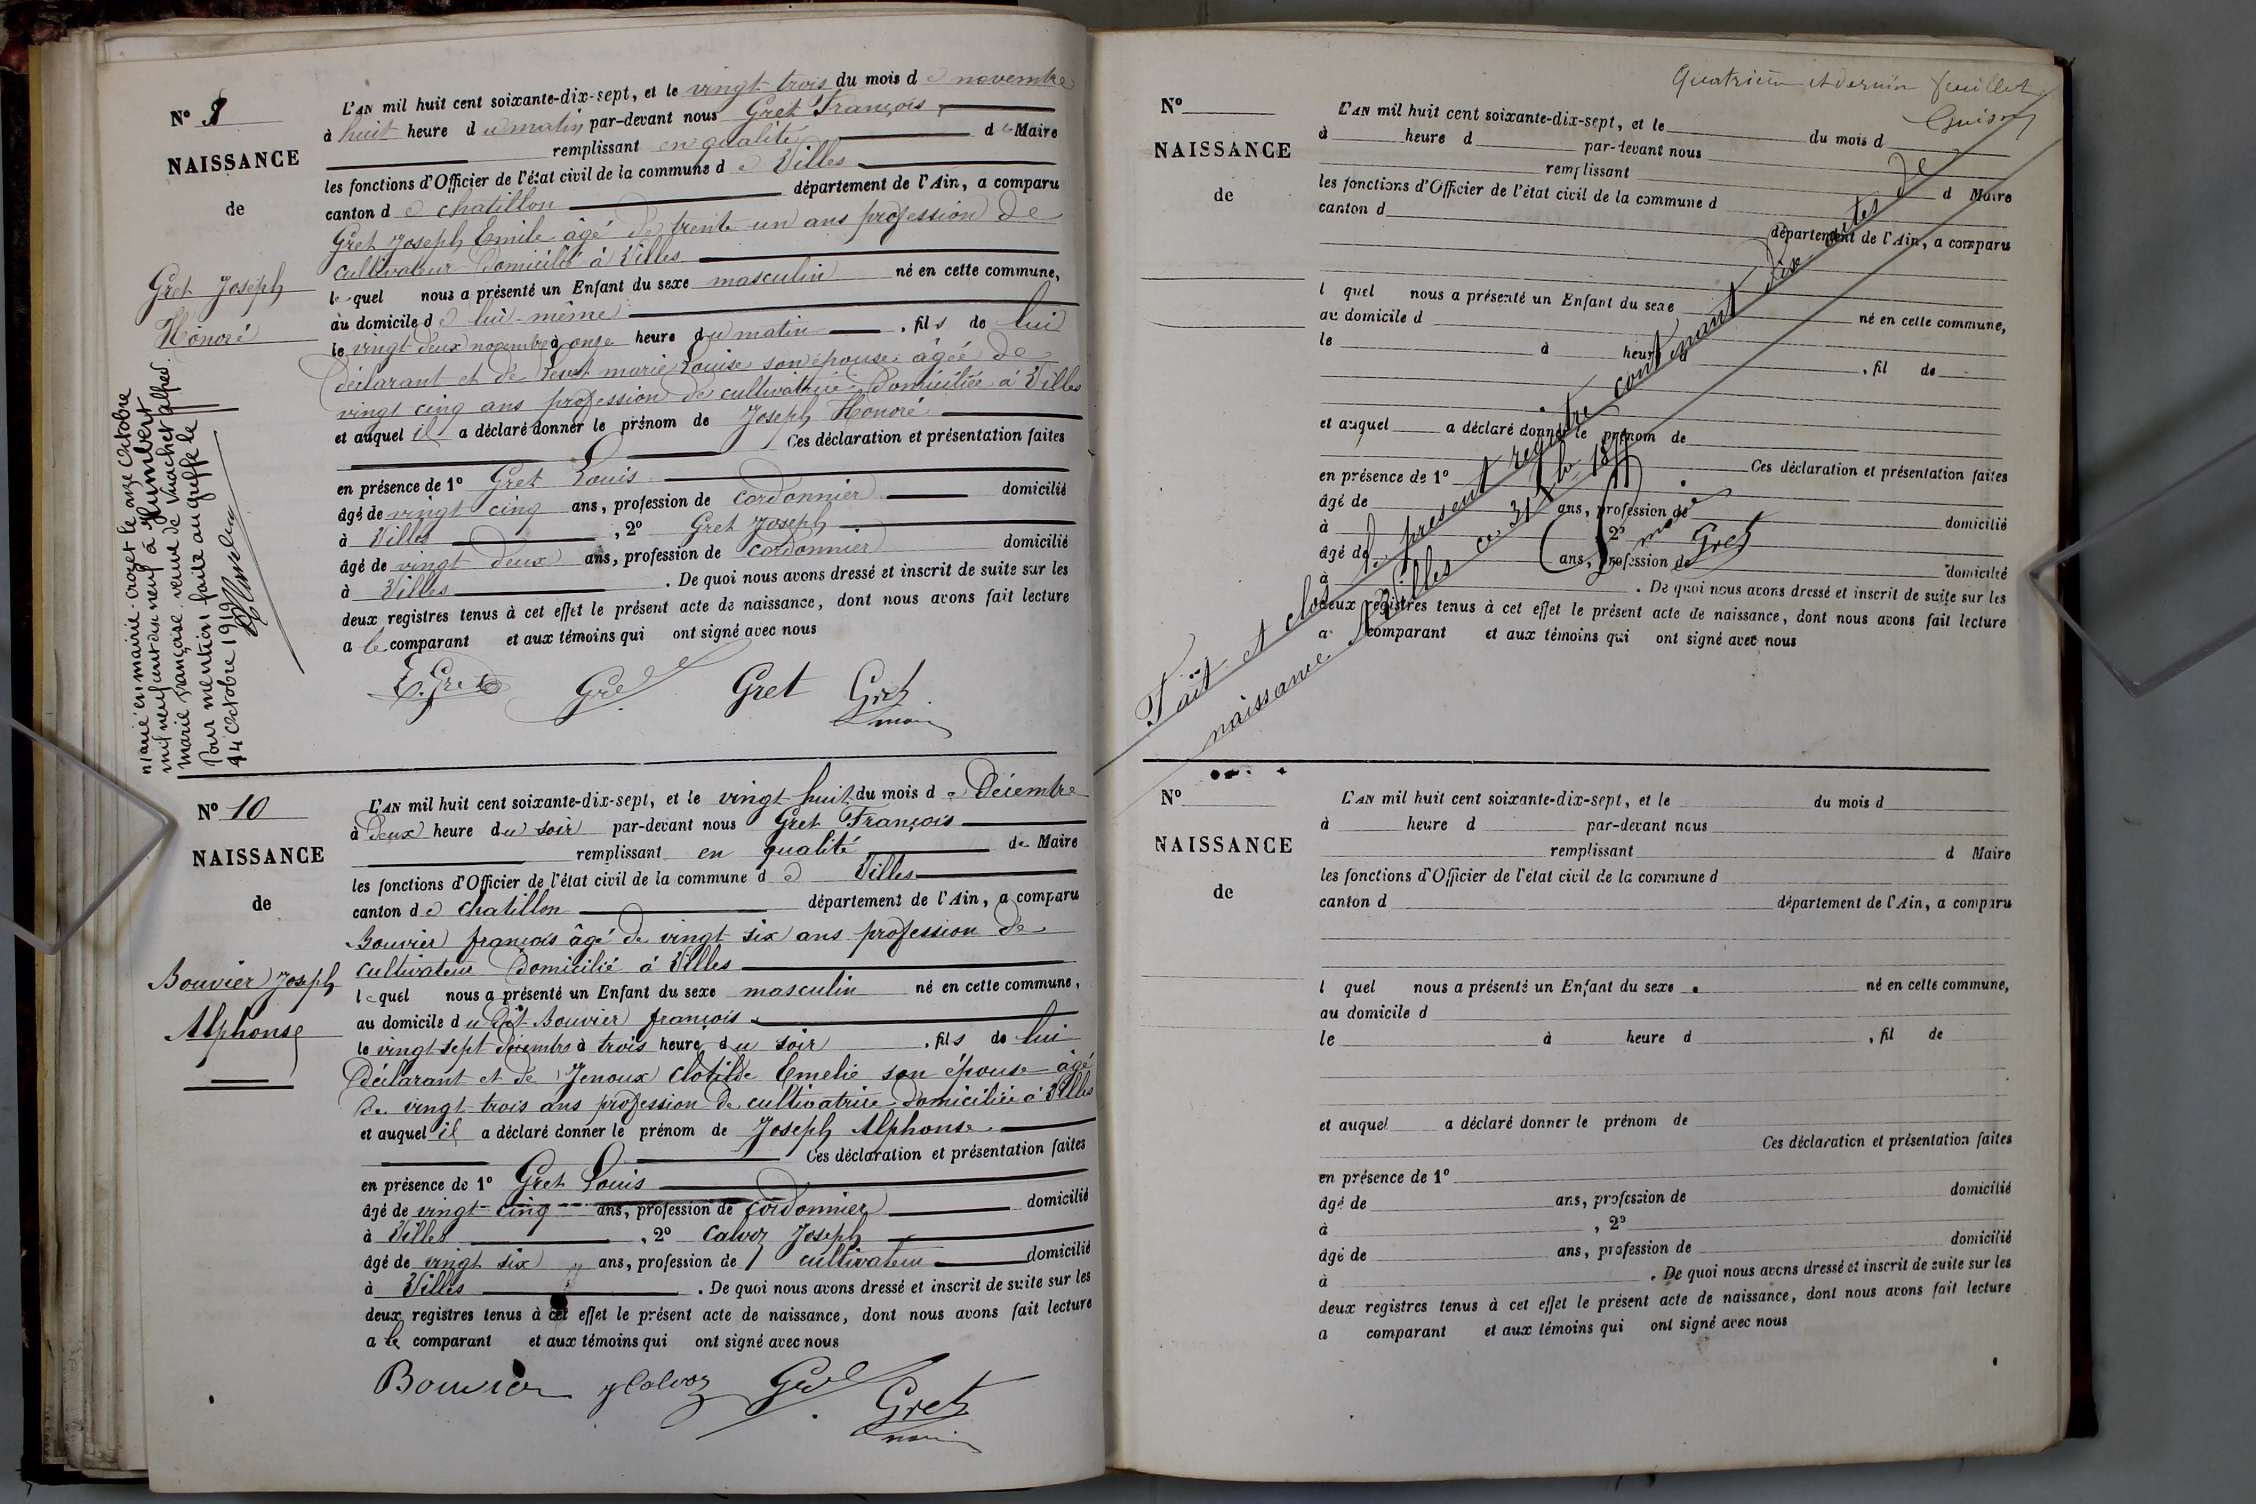 N° 9
NAISSANCE
de
Gret Joseph
Honoré
marié en mairie Crozet le onze octobre
mil neuf cent dix neuf à Humbert
marie françoise veuve de Vuachet alfred
Pour mention faite au greffe le
14 octobre 1919
L'AN mil huit cent soixante-dix-sept, et le vingt trois du mois de novembre
à huit heure du matin par-devant nous Gret François
remplissant en qualité de Maire
les fonctions d'Officier de l'état civil de la commune de Villes
canton de chatillon département de l'Ain, a comparu
Gret Joseph Emile âgé de trente un ans profession de
cultivateur domicilié à Villes
lequel nous a présenté un Enfant du sexe masculin né en cette commune,
au domicile de lui-même
le vingt deux novembre à onze heure du matin, fils de lui
déclarant et de marie Louise son épouse âgée de
vingt cinq ans profession de cultivatrice domiciliée à Villes
et auquel il a déclaré donner le prénom de Joseph Honoré
Ces déclaration et présentation faites
en présence de 1° Gret Louis
âgé de vingt cinq ans, profession de cordonnier domicilié
à Villes, 2° Gret Joseph
âgé de vingt deux ans, profession de cordonnier domicilié
à Villes. De quoi nous avons dressé et inscrit de suite sur les
deux registres tenus à cet effet le présent acte de naissance, dont nous avons fait lecture
a le comparant et aux témoins qui ont signé avec nous
E. Gret Gret Gret Gret
maire
N° 10
NAISSANCE
de
Bouvier Joseph
Alphonse
L'AN mil huit cent soixante-dix-sept, et le vingt huit du mois de Décembre
à deux heure du soir par-devant nous Gret François
remplissant en qualité de Maire
les fonctions d'Officier de l'état civil de la commune de Villes
canton de chatillon département de l'Ain, a comparu
Bouvier françois âgé de vingt six ans profession de
cultivateur domicilié à Villes
lequel nous a présenté un Enfant du sexe masculin né en cette commune,
au domicile du dit Bouvier françois
le vingt sept décembre à trois heure du soir, fils de lui
Déclarant et de Jenoux Clotilde Emelie son épouse âgé
de vingt-trois ans profession de cultivatrice domiciliée à Villes
et auquel il a déclaré donner le prénom de Joseph Alphonse
Ces déclaration et présentation faites
en présence de 1° Gret Louis
âgé de vingt-cinq ans, profession de cordonnier domicilié
à Villes, 2° Calvoz Joseph
âgé de vingt six ans, profession de cultivateur domicilié
à Villes. De quoi nous avons dressé et inscrit de suite sur les
deux registres tenus à cet effet le présent acte de naissance, dont nous avons fait lecture
a le comparant et aux témoins qui ont signé avec nous
Bouvier J Calvoz Gret Gret
maire
Quatrième et dernier feuillet
N°
NAISSANCE
de
L'AN mil huit cent soixante-dix-sept, et le du mois d
à heure d par-devant nous
remplissant d Maire
les fonctions d'Officier de l'état civil de la commune d
canton d département de l'Ain, a comparu
l quel nous a présenté un Enfant du sexe né en cette commune,
au domicile d
le à heure d, fil de
et auquel a déclaré donner le prénom de
Ces déclaration et présentation faites
en présence de 1°
âgé de ans, profession de domicilié
à, 2°
âgé de ans, profession de domicilié
à. De quoi nous avons dressé et inscrit de suite sur les
deux registres tenus à cet effet le présent acte de naissance, dont nous avons fait lecture
a comparant et aux témoins qui ont signé avec nous
Fait et clos le présent registre contenant dix actes de
naissance à Villes ce 31 Xbre 1877
maire
Gret
N°
NAISSANCE
de
L'AN mil huit cent soixante-dix-sept, et le du mois d
à heure d par-devant nous
remplissant d Maire
les fonctions d'Officier de l'état civil de la commune d
canton d département de l'Ain, a comparu
l quel nous a présenté un Enfant du sexe né en cette commune,
au domicile d
le à heure d, fil de
et auquel a déclaré donner le prénom de
Ces déclaration et présentation faites
en présence de 1°
âgé de ans, profession de domicilié
à, 2°
âgé de ans, profession de domicilié
à. De quoi nous avons dressé et inscrit de suite sur les
deux registres tenus à cet effet le présent acte de naissance, dont nous avons fait lecture
a comparant et aux témoins qui ont signé avec nous